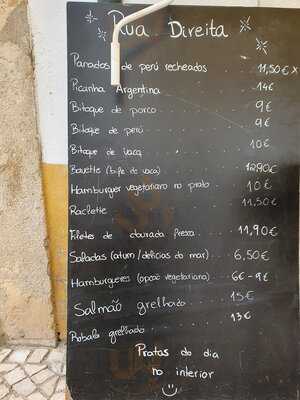 Rua Direita
Panados de perú recheados . . 11,50€ x
Picanha Argentina . . . . 14€
Bitoque de porco . . . . 9€
Bitoque de perú . . . . 9€
Bitoque de vaca . . . . 10€
Bavette (bife de vaca) . . . 12,90€
Hamburguer vegetariano no prato . 10€
Raclette . . . . 11,50€
Filetes de dourada fresca . . 11,90€
Saladas (atum/delícias do mar) . . 6,50€
Hamburgueres (opção vegetariana) . 6€-9€
Salmão grelhado . . . 15€
Robalo grelhado . . . 13€
Pratos do dia
no interior